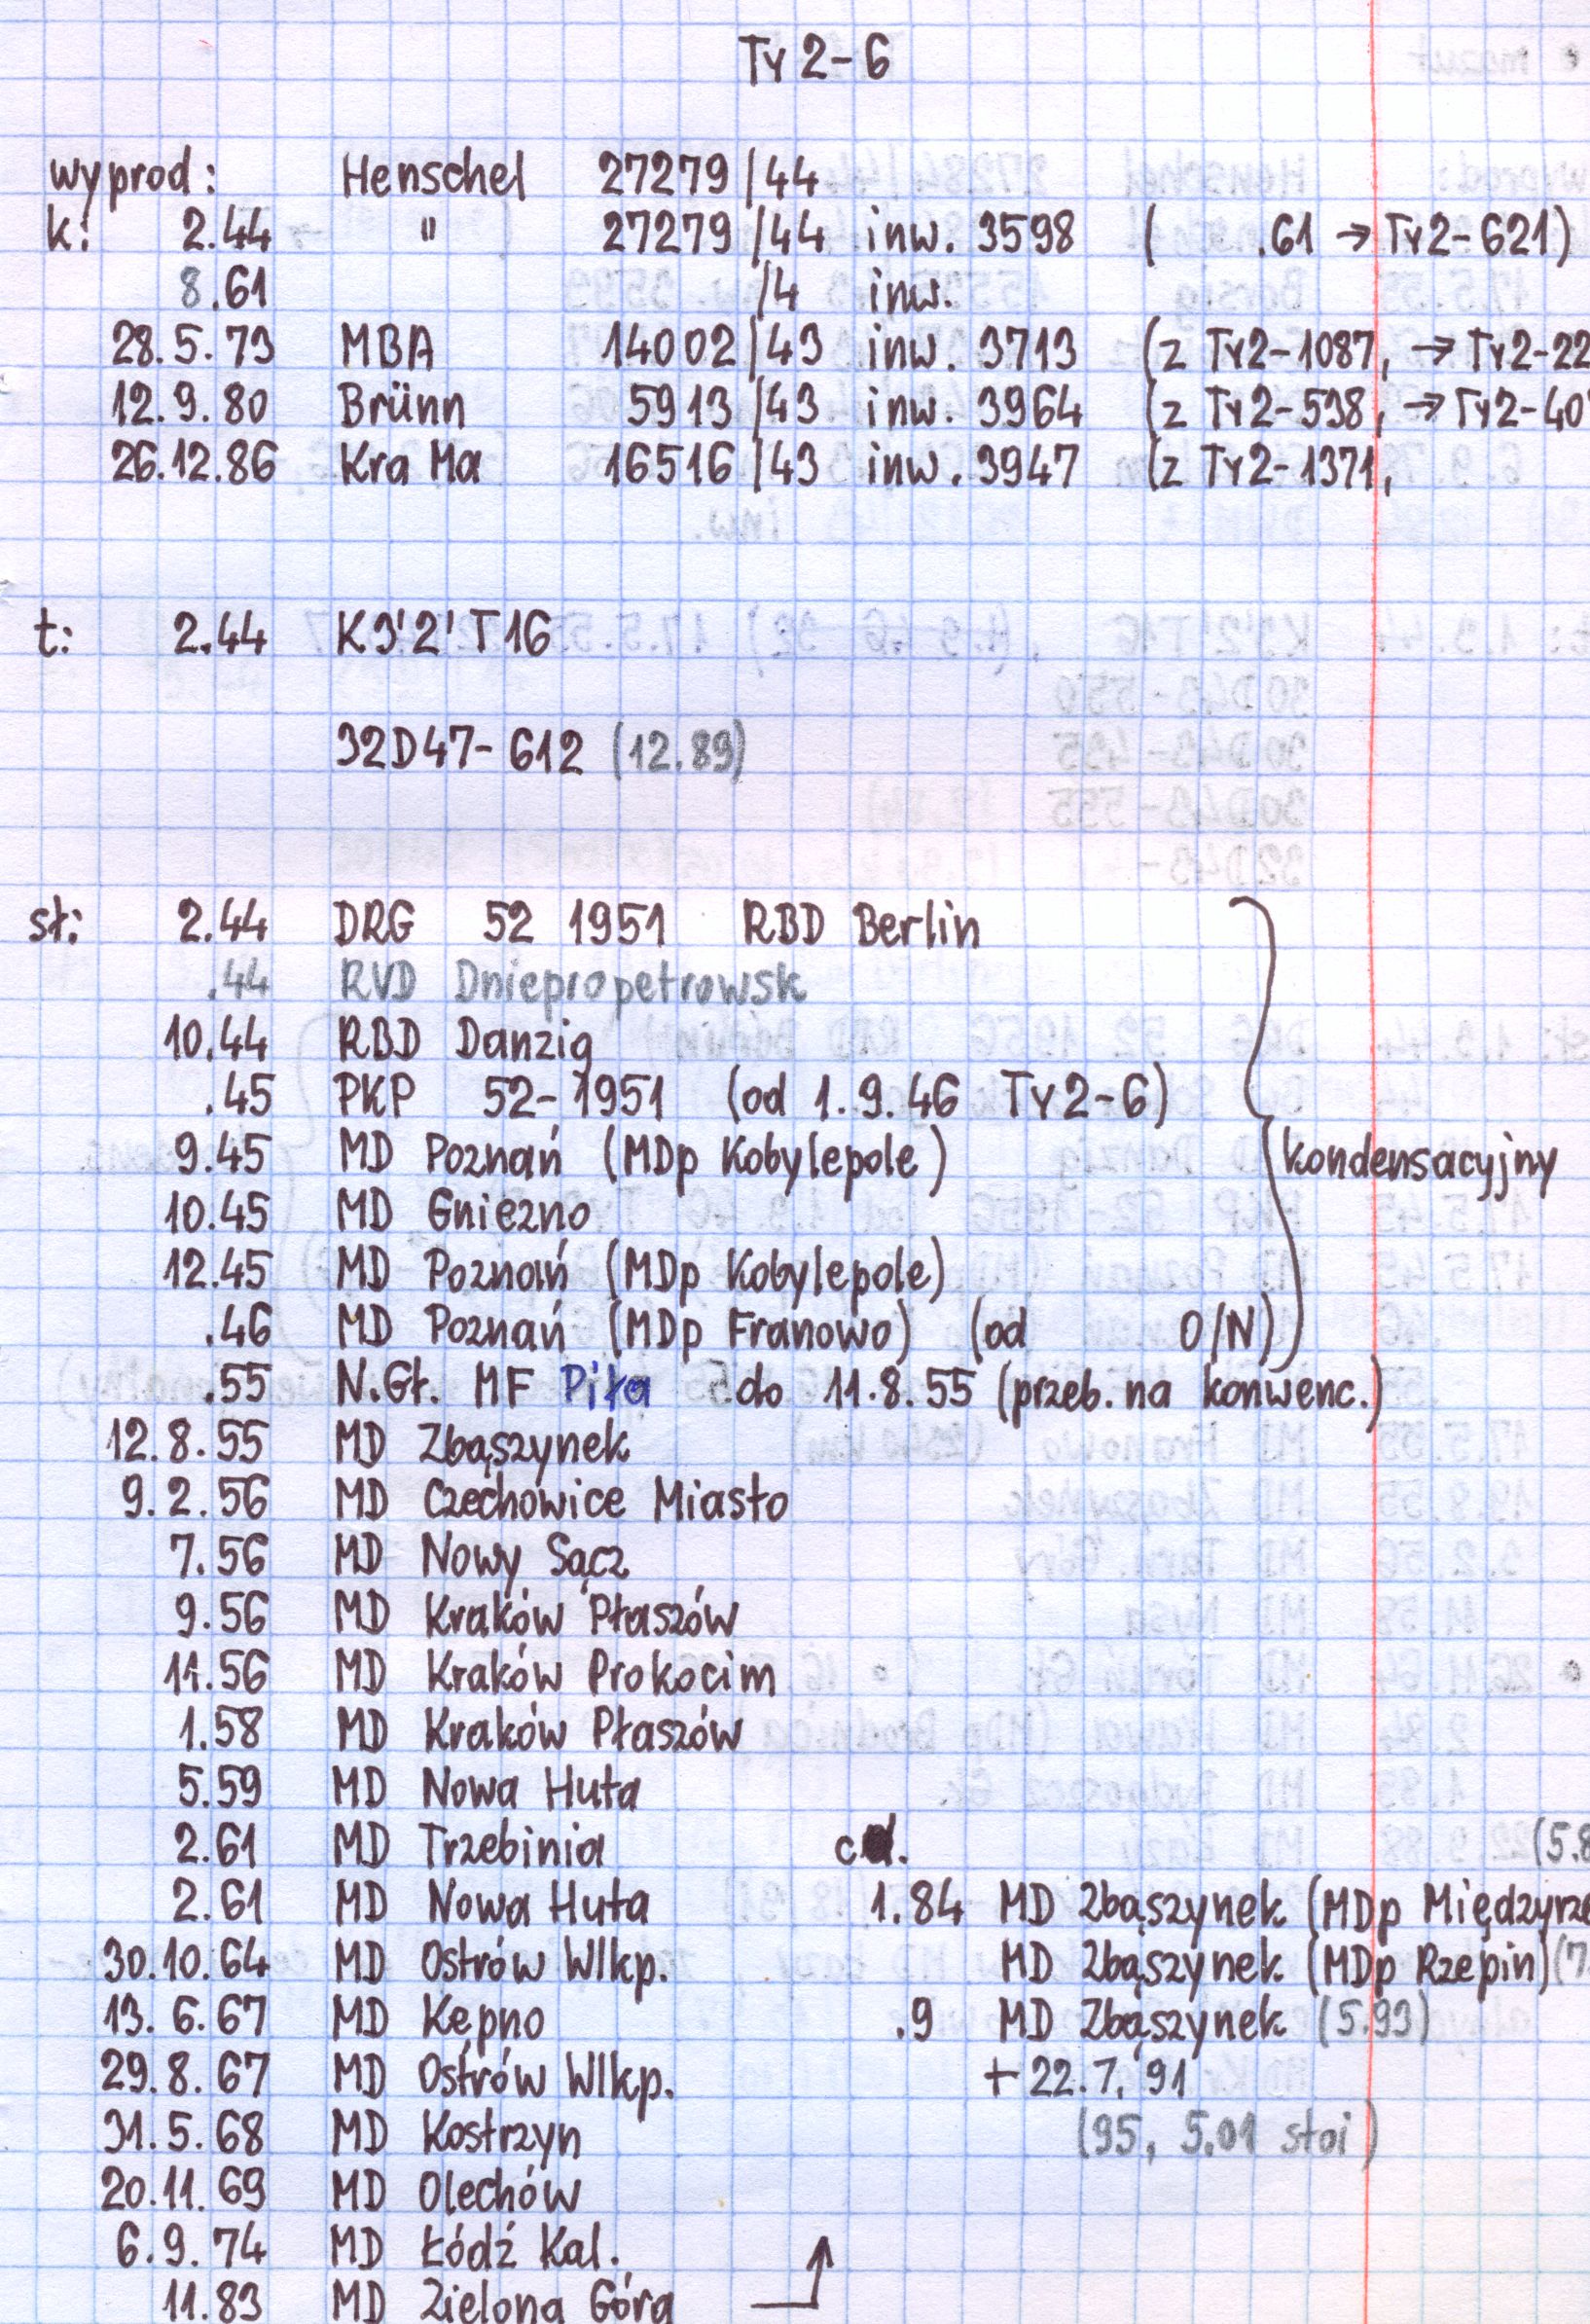 Ty 2-6
wyprod: Henschel 27279/44
k: 2.44 " 27279/44 inw. 3598 ( .61 → Ty2-621)
8.61 /4 inw.
28.5.73 MBA 14002/43 inw. 3713 (z Ty2-1087, → Ty2-22
12.9.80 Brünn 5913/43 inw. 3964 (z Ty2-538, → Ty2-40
26.12.86 Kra Ma 16516/43 inw. 3947 (z Ty2-1371,
t: 2.44 K3'2'T16
32D47-612 (12.89)
sł: 2.44 DRG 52 1951 RBD Berlin
.44 RVD Dniepropetrowsk
10.44 RBD Danzig
.45 PKP 52-1951 (od 1.9.46 Ty2-6)
9.45 MD Poznań (MDp Kobylepole) kondensacyjny
10.45 MD Gniezno
12.45 MD Poznań (MDp Kobylepole)
.46 MD Poznań (MDp Franowo) (od O/N)
.55 N.Gł. MF Piła do 11.8.55 (przeb. na konwenc.)
12.8.55 MD Zbąszynek
9.2.56 MD Czechowice Miasto
7.56 MD Nowy Sącz
9.56 MD Kraków Płaszów
11.56 MD Kraków Prokocim
1.58 MD Kraków Płaszów
5.59 MD Nowa Huta
2.61 MD Trzebinia
2.61 MD Nowa Huta
30.10.64 MD Ostrów Wlkp.
13.6.67 MD Kępno
29.8.67 MD Ostrów Wlkp.
31.5.68 MD Kostrzyn
20.11.69 MD Olechów
6.9.74 MD Łódź Kal.
11.83 MD Zielona Góra
cd. (5.8
1.84 MD Zbąszynek (MDp Międzyrze
MD Zbąszynek (MDp Rzepin) (7.
.9 MD Zbąszynek (5.93)
+ 22.7.91
(95, 5.01 stoi)